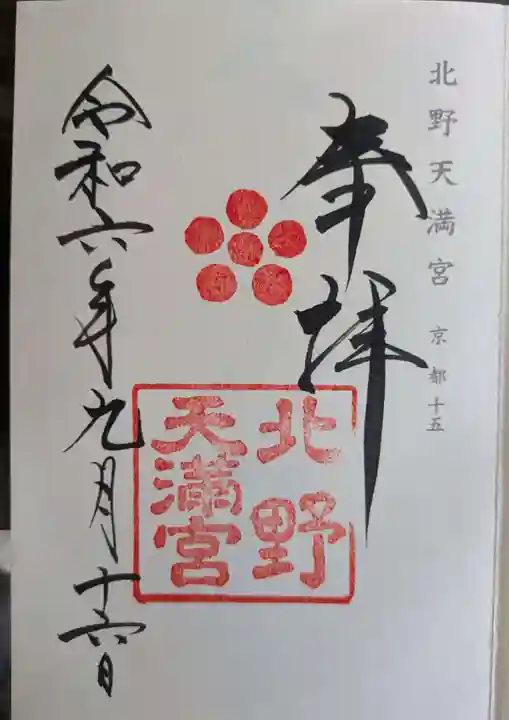 北野天満宮 京都十五
奉拝
北野
天満宮
令和六年九月十六日